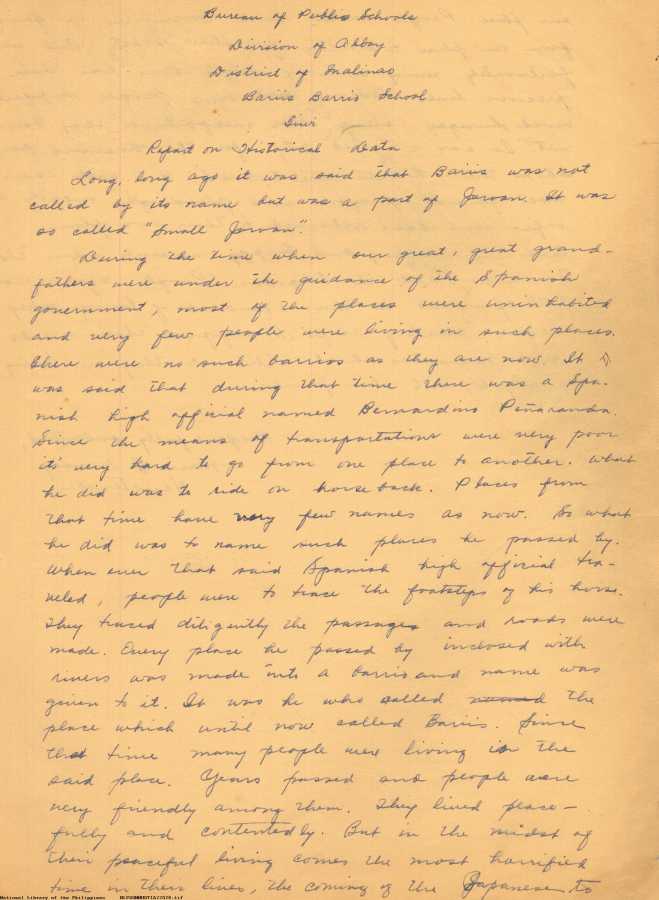 Bureau of Public Schools
Division of Albay
District of Malinao
Bariis Barrio School
Tiwi
Report on Historical Data
Long, long ago it was said that Bariis was not
called by its name but was a part of Jovan. It was
so called "Small Jovan".
During the time when our great, great grand-
fathers were under the guidance of the Spanish
government, most of the places were uninhabited
and very few people were living in such places.
There were no such barrios as they are now. It
was said that during that time there was a Spa-
nish high official named Bernardino Peñaranda.
Since the means of transportations were very poor
it's very hard to go from one place to another. What
he did was to ride on horse back. Places from
that time have very few names as now. So what
he did was to name such places he passed by.
When ever that said Spanish high official tra-
veled, people were to trace the footsteps of his horse.
They traced diligently the passages and roads were
made. Every place he passed by inclosed with
rivers was made into a barrio and name was
given to it. It was he who called the
place which until now called Bariis. Since
that time many people were living in the
said place. Years passed and people were
very friendly among them. They lived peace-
fully and contentedly. But in the midst of
their peaceful living comes the most horrified
time in their lives, the coming of the Japanese to
National Library of the Philippines